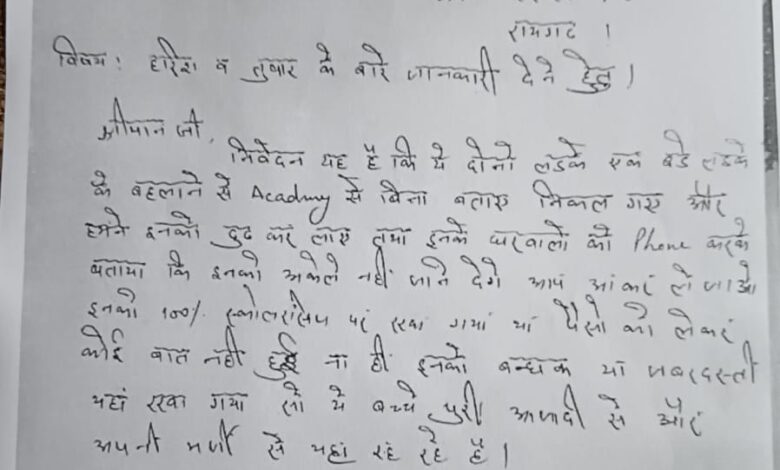 रायगढ ।
विषय : हरिश व तुषार के बारे जानकारी देने हेतु ।
श्रीमान जी,
निवेदन यह है कि ये दोनो लडके एक बडे लडके
के बहलाने से Acadmy से बिना बताए निकल गए और
हमने इनको ढुढ कर लाए तथा इनके घरवालो को Phone करके
बताया कि इनको अकेले नहीं जाने देगे आप आंकर ले जाओ
इनको 100% स्कोलरसिप पर रखा गया था पैसो को लेकर
कोई बात नही हुई ना ही इनको बन्धक या जबरदस्ती
यहां रखा गया सो ये बच्चे पुरी आजादी से और
अपनी मर्जी से यहां रह रहे है ।